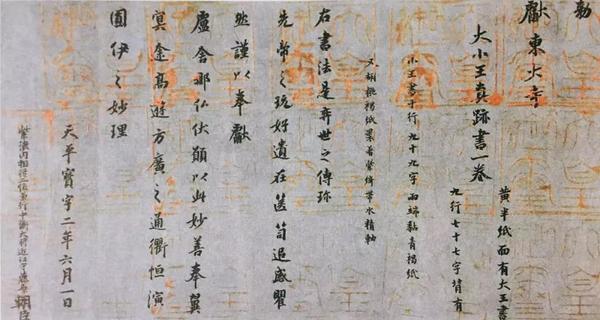 勅
獻東大寺
大小王真跡書一卷
黄半紙面有大王書
九行七十七字背有
小王書十行九十九字兩端黏青褐紙
又胡桃褐紙裏著紫綺帶水精軸
右書法是弈世之傳珎
先帝之玩好遺在篋笥追感瞿
然謹以奉獻
盧舍那仏伏願以此妙善奉翼
冥途高遊方廣之通衢恒演
圓伊之妙理
天平寶字二年六月一日
紫微内相從二位兼行中衛大將近江守藤原朝臣